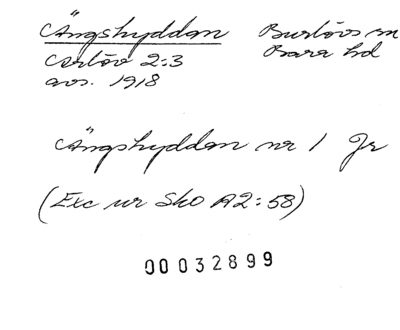 Ängshyddan Burlövs sn
Arlöv 2:3 Bara hd
avs. 1918
Ängshyddan nr 1 Jr
(Exc ur Sko A2:58)
00032899